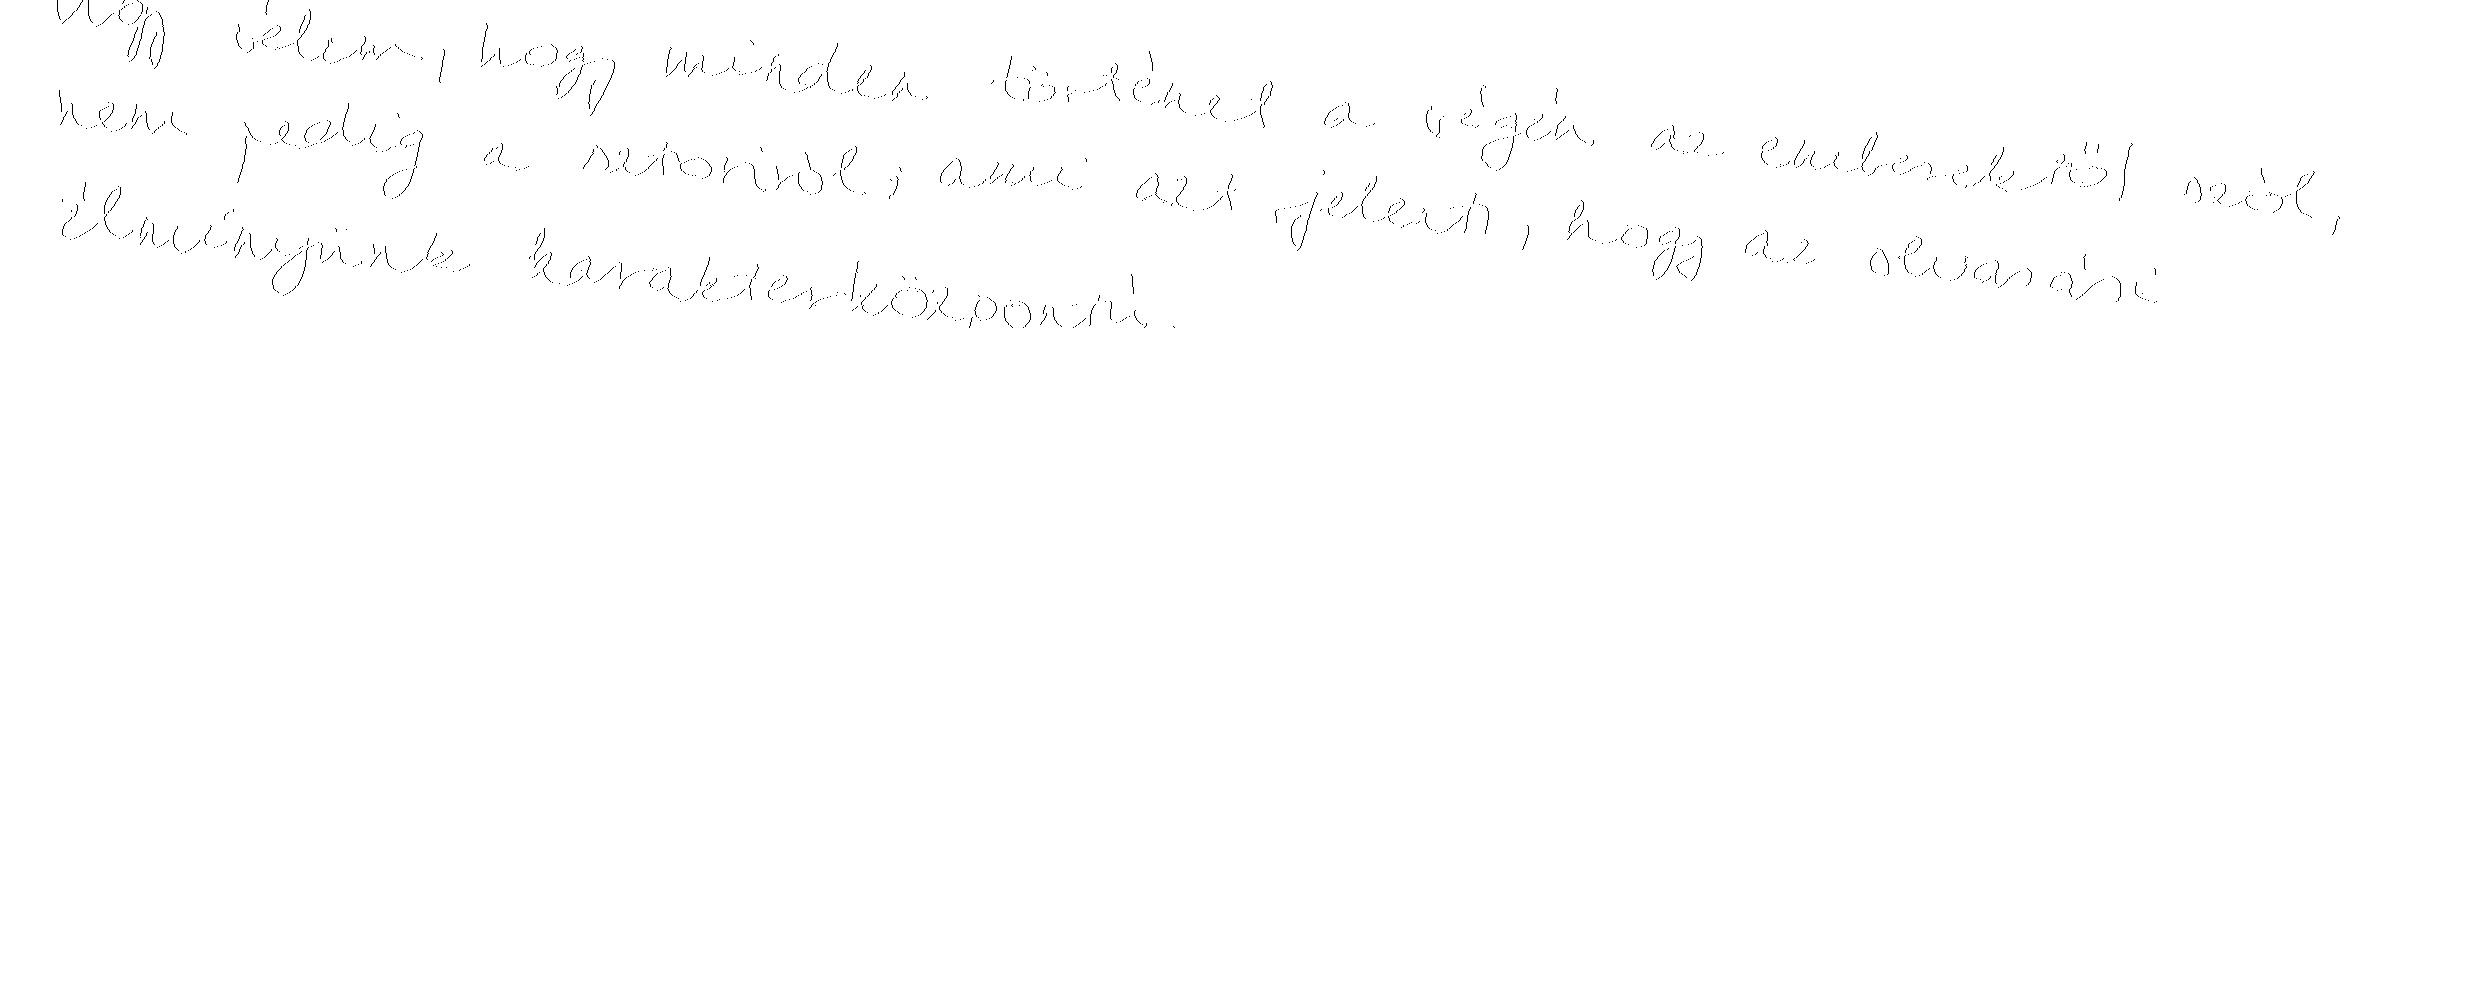 Úgy vélem, hogy minden történet a végén az emberekről szól,
nem pedig a sztoriról, ami azt jelenti, hogy az olvasási
élményink karakterközpontú.